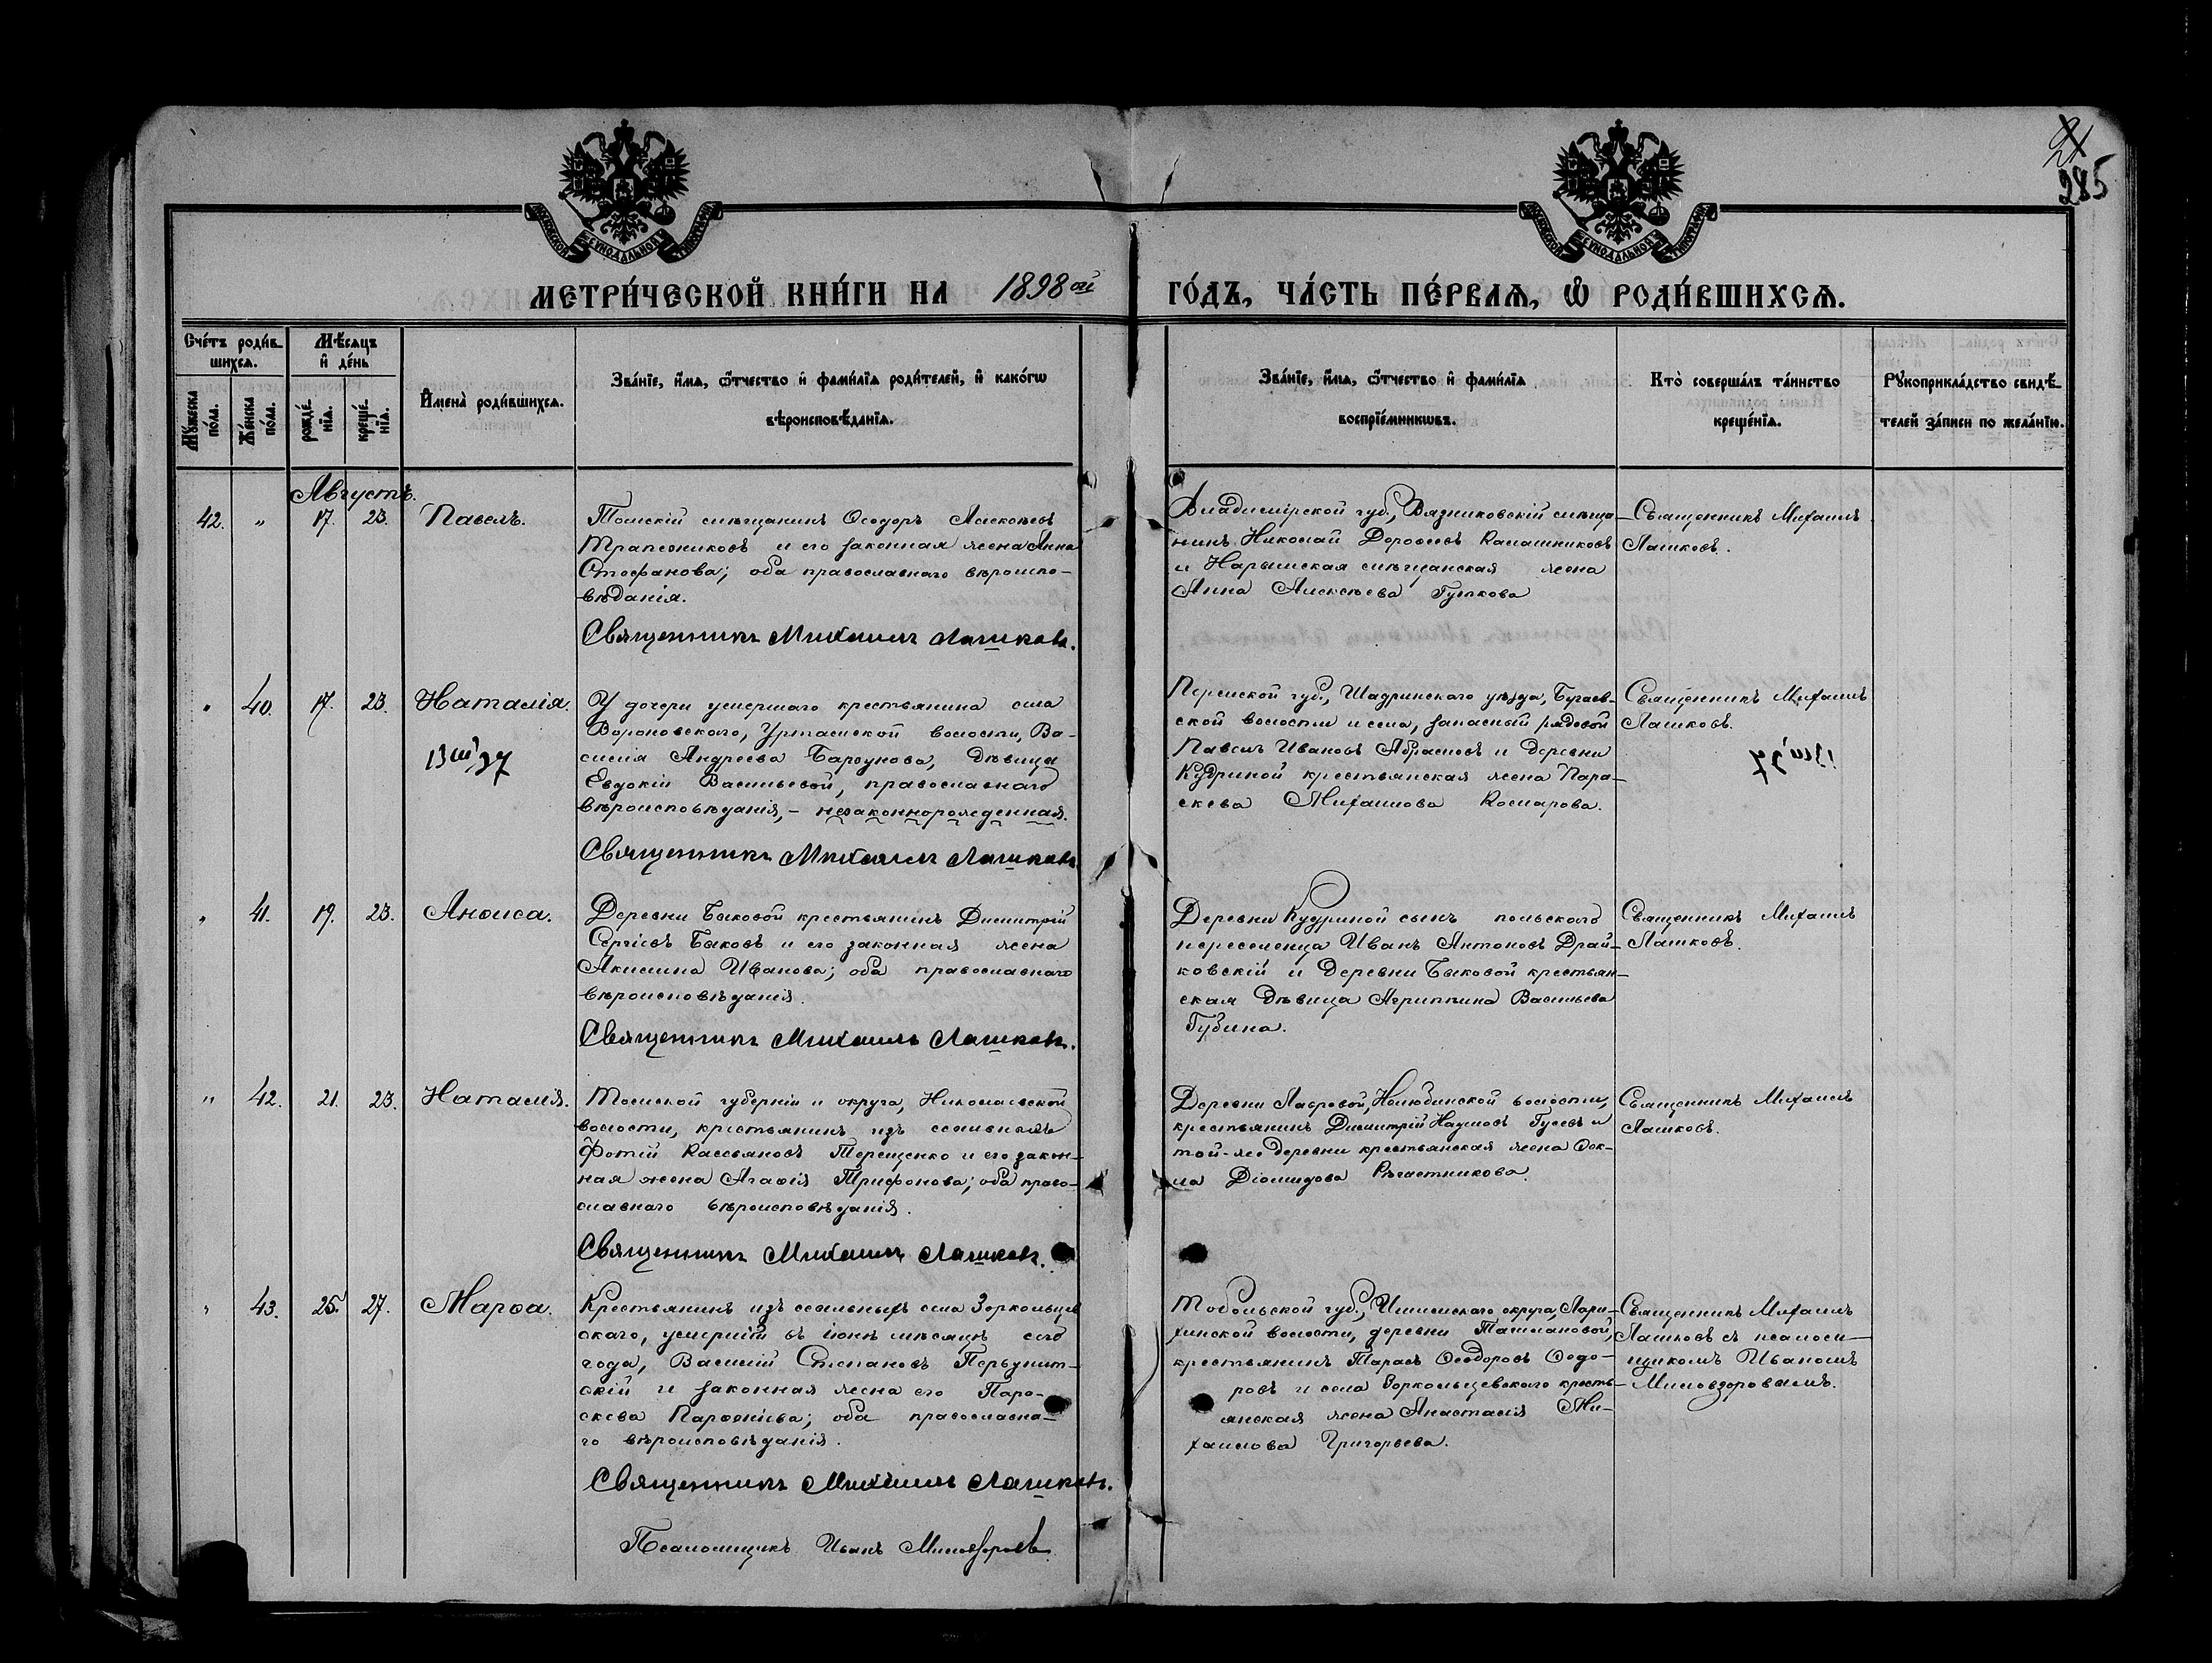 21
285
МОСКОВСКОЙ СУНОДАЛЬНОЙ ТИПОГРАФИИ
МОСКОВСКОЙ СУНОДАЛЬНОЙ ТИПОГРАФИИ
МЕТРИ́ЧЕСКОЙ КНИ́ГИ НА 1898ой ГО́ДЪ, ЧА́СТЬ ПЕ́РВАѦ, Ѿ РОДИ́ВШИХСѦ.
Сче́тъ роди́в-
шихсѧ.
Мѣ́сѧцъ
и҆ де́нь
Мꙋ́жеска
по́ла.
Же́нска
по́ла.
рожде́-
нїѧ.
креще́-
нїѧ.
И҆мена̀ роди́вшихсѧ.
Зва́нїе, и҆́мѧ, ѻ҆́тчество и҆ фами́лїѧ роди́телей, и҆ како́гѡ
вѣроисповѣ́данїѧ.
Зва́нїе, и҆́мѧ, ѻ҆́тчество и҆ фами́лїѧ
воспрїе́мникѡвъ.
Кто̀ соверша́лъ та́инство
креще́нїѧ.
Рꙋкоприкла́дство свидѣ́-
телей за́писи по жела́нїю.
Августъ.
42. " 17. 23. Павелъ.
Томскій мѣщанинъ Ѳеодоръ Алексѣевъ
Трапезниковъ и его законная жена Анна
Стефанова; оба православнаго вѣроиспо-
вѣданія.
Священникъ Михаилъ Лашковъ.
Владимірской губ., Вязниковскій мѣща-
нинъ Николай Дороѳеевъ Калашниковъ
и Нарымская мѣщанская жена
Анна Алексѣева Гуткова
Священникъ Михаилъ
Лашковъ.
" 40. 17. 23. Наталія.
13 III 37
У дочери умершаго крестьянина села
Вороновскаго, Уртамской волости, Ва-
силія Андреева Барсукова, дѣвицы
Евдокіи Васильевой, православнаго
вѣроисповѣданія, – незаконнорожденная.
Священникъ Михаилъ Лашковъ.
Пермской губ., Шадринскаго уѣзда, Бугаев-
ской волости и села, запасный рядовой
Павелъ Ивановъ Абрамовъ и деревни
Кудриной крестьянская жена Пара-
скева Михаилова Комарова.
Священникъ Михаилъ
Лашковъ.
" 41. 19. 23. Анѳиса.
Деревни Быковой крестьянинъ Димитрій
Сергіевъ Быковъ и его законная жена
Акилина Иванова; оба православнаго
вѣроисповѣданія.
Священникъ Михаилъ Лашковъ.
Деревни Кудриной сынъ польскаго
переселенца Иванъ Антоновъ Драй-
ковскій и деревни Быковой крестьян-
ская дѣвица Агриппина Васильева
Губина.
Священникъ Михаилъ
Лашковъ.
" 42. 21. 23. Наталія.
Томской губерніи и округа, Николаевской
волости, крестьянинъ изъ ссыльныхъ
Фотій Кассьяновъ Терещенко и его закон-
ная жена Агаѳія Трифонова; оба право-
славнаго вѣроисповѣданія.
Священникъ Михаилъ Лашковъ.
Деревни Лавровой, Нелюбинской волости,
крестьянинъ Димитрій Наумовъ Гусевъ и
той-же деревни крестьянская жена Ѳек-
ла Діомидова
Священникъ Михаилъ
Лашковъ.
" 43. 25. 27. Марѳа.
Крестьянинъ изъ ссыльныхъ села Зоркольцев-
скаго, умершій въ іюнѣ мѣсяцѣ сего
года, Василій Степановъ Первунин-
скій и законная жена его Пара-
скева Парѳеніева; оба православна-
го вѣроисповѣданія.
Священникъ Михаилъ Лашковъ.
Псаломщикъ Иванъ Миловзоровъ
Тобольской губ., Ишимскаго округа, Лари-
хинской волости, деревни Ташлановой,
крестьянинъ Тарасъ Ѳеодоровъ Ѳедо-
ровъ и села Зоркольцевскаго кресть-
янская жена Анастасія Ми-
хаилова Григорьева.
Священникъ Михаилъ
Лашковъ съ псалом-
щикомъ Иваномъ
Миловзоровымъ.